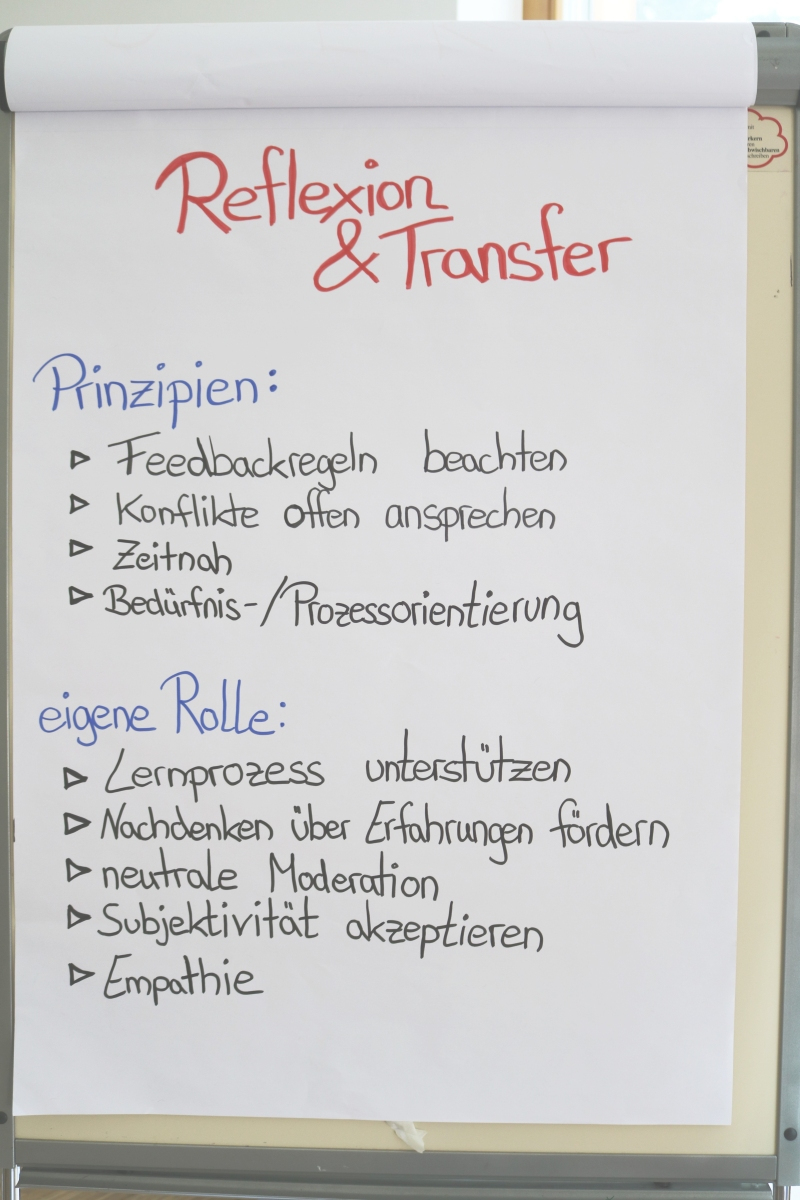 Reflexion
& Transfer
Prinzipien:
▷ Feedbackregeln beachten
▷ Konflikte offen ansprechen
▷ Zeitnah
▷ Bedürfnis-/Prozessorientierung
eigene Rolle:
▷ Lernprozess unterstützen
▷ Nachdenken über Erfahrungen fördern
▷ neutrale Moderation
▷ Subjektivität akzeptieren
▷ Empathie